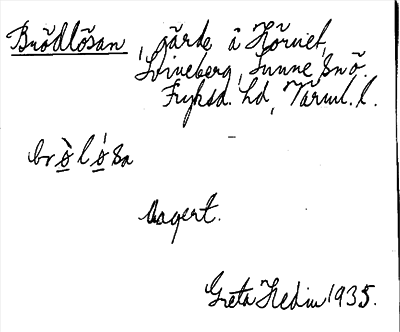 Brödlösan, gärde å Hörviet,
Svineberg, Sunne sn ö.
Fryksd. hd, Värml. l.
brø̀løsa
Aagert.
Greta Hedin 1935.